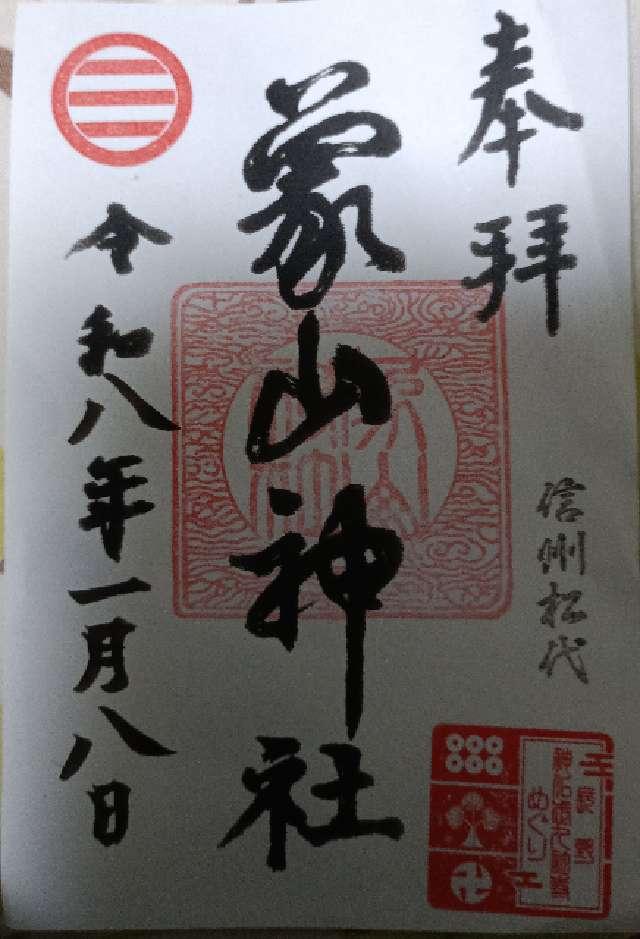 奉拝
信州松代
象山神社
令和八年一月八日
めぐり